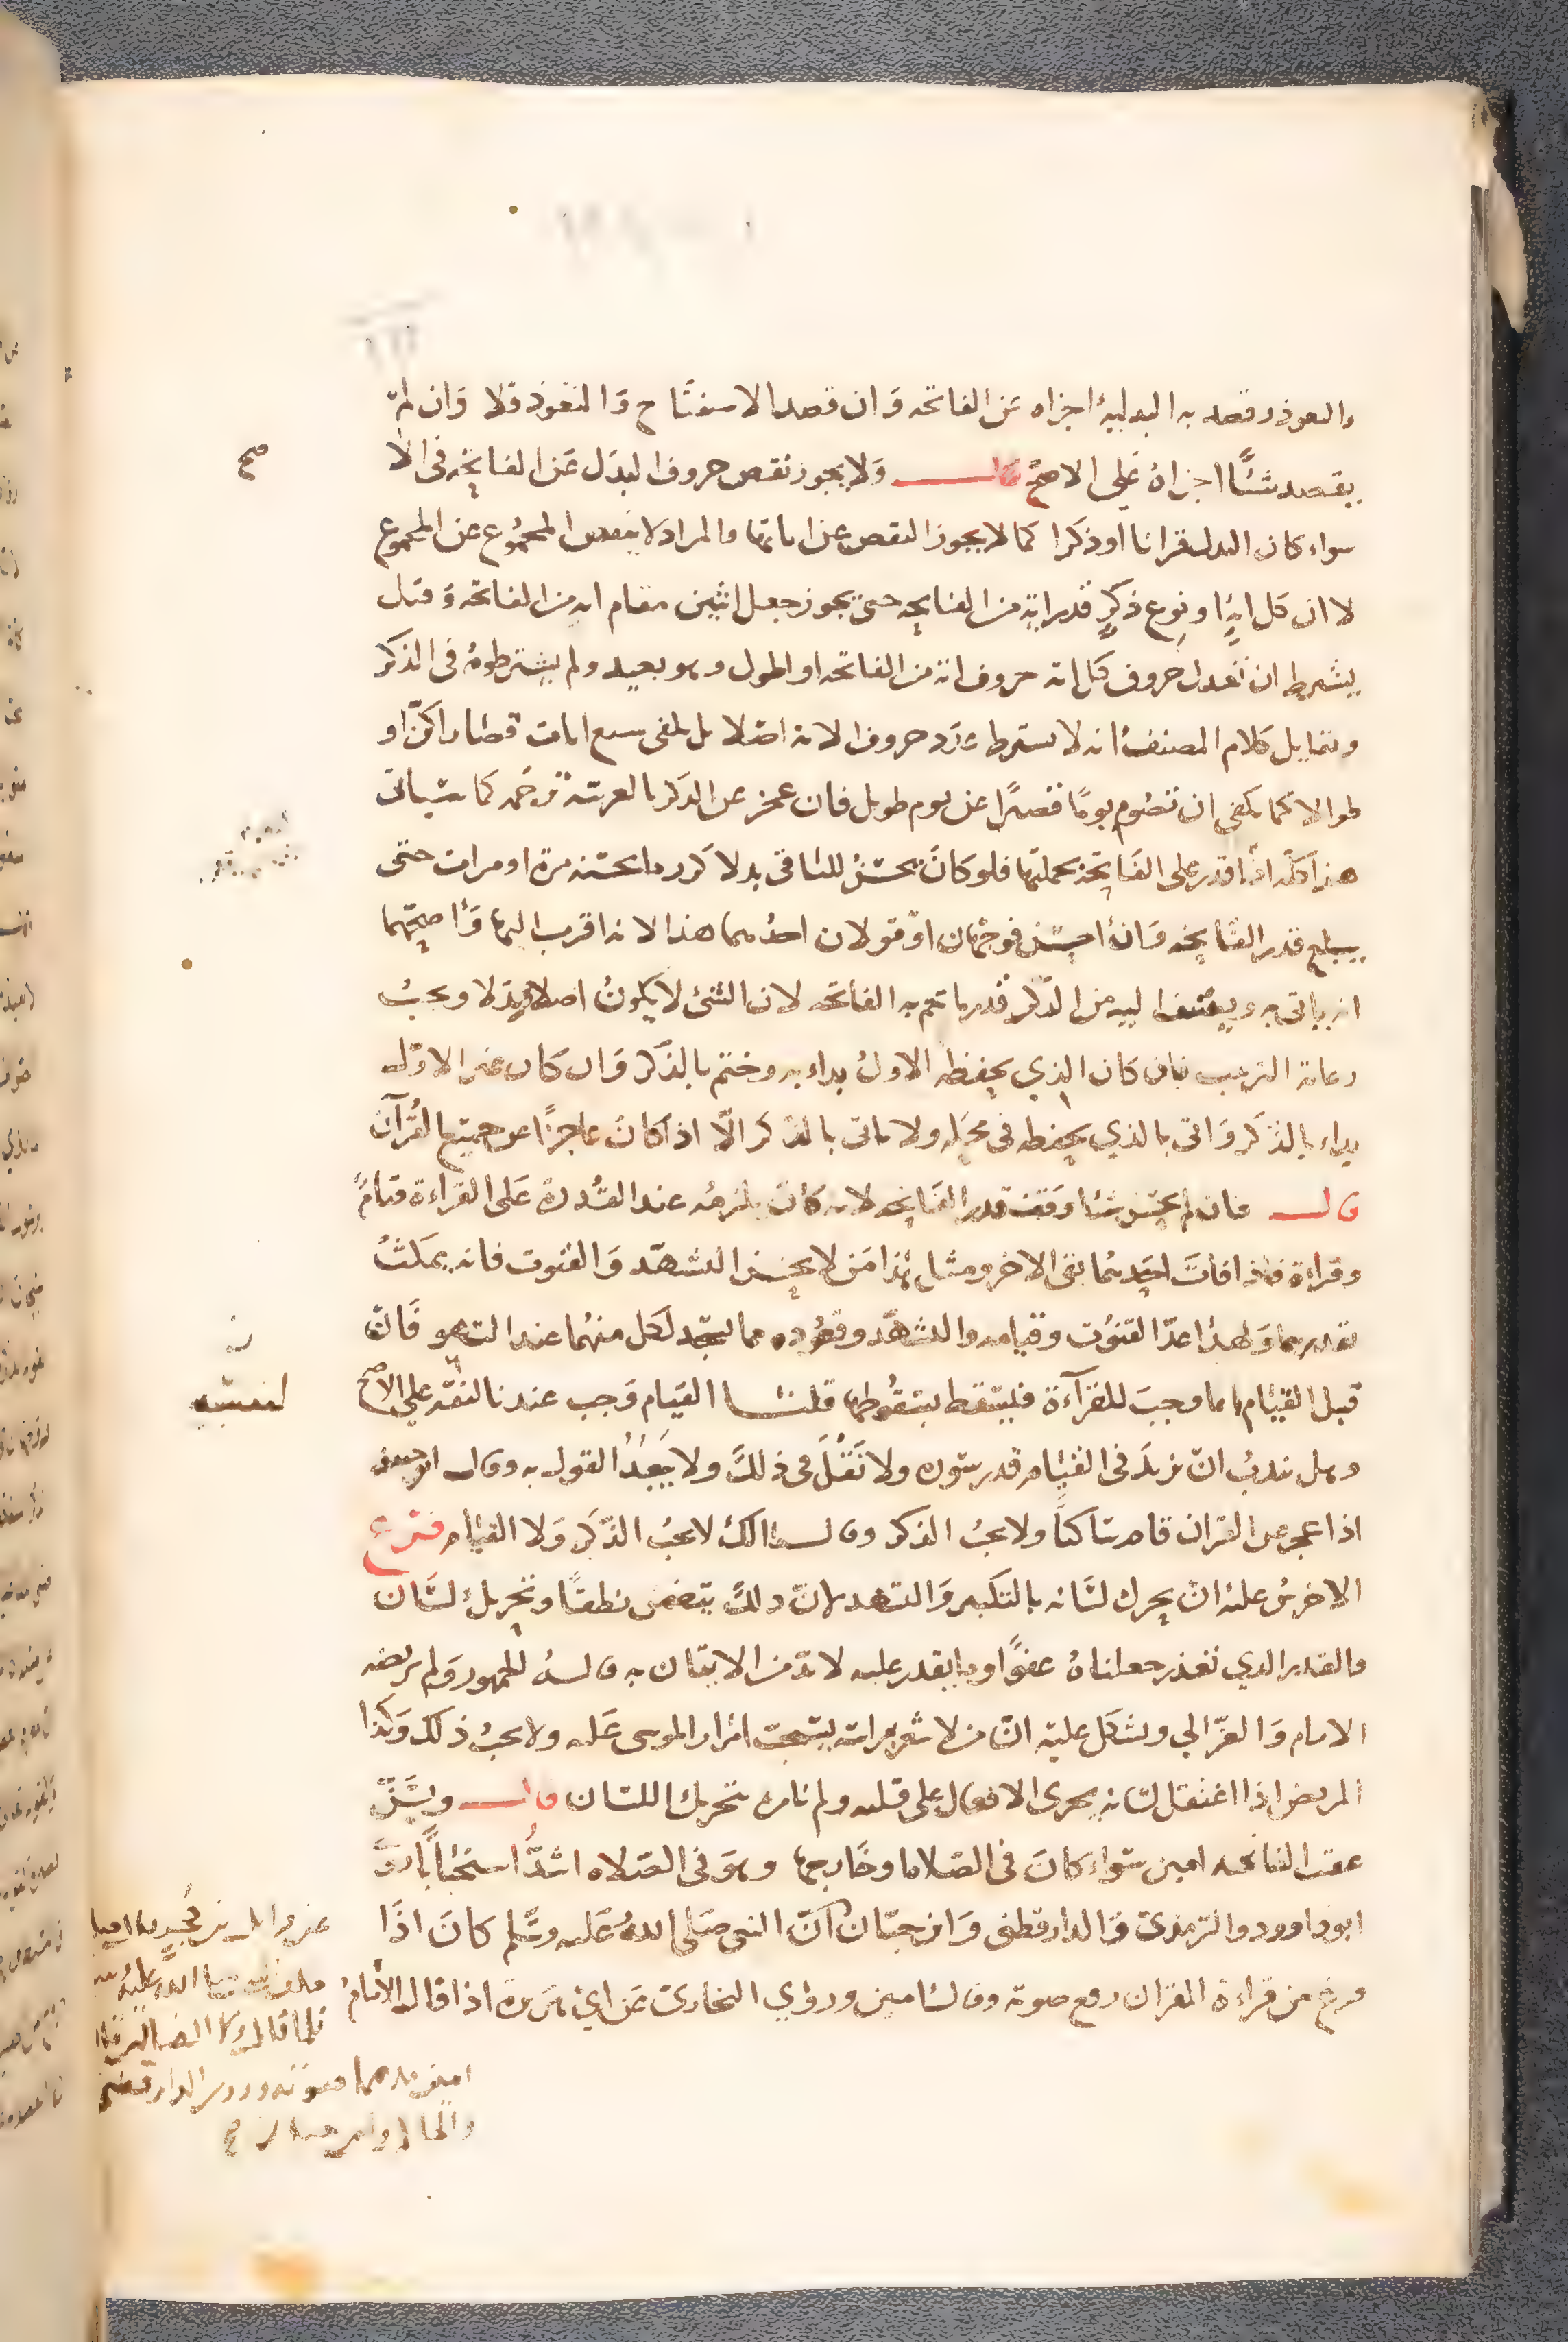 والتعوذ وقصد به البدلية اجزاه عن الفاتحه وان قصد الاستفتاح والتعوذ فلا وان لم
يقصد شيئا اجزاه على الاصح قال ولا يجوز نقص حروف البدل عن الفاتحه فى الا
صح
سواء كان البدل قرانا او ذكرا كما لا يجوز النقص عن اياتها والمراد لا ينقص المجموع عن المجموع
لا ان كل اية او نوع ذكر قدر اية من الفاتحه حتى يجوز جعل اثنين مقام ايه من الفاتحه وقيل
يشترط ان تعدل حروف كل ايه حروف اية من الفاتحه او اطول وهو بعيد ولم يشترطوه فى الذكر
ويقابل كلام المصنف انه لا يشترط عدد حروف الاية اصلا بل يكفى سبع ايات قصارا كن او
طوالا كما يكفى ان تصوم يوما قصيرا عن يوم طويل فان عجز عن الذكر بالعربية ترجمه كما سياتى
هذا كله اذا قدر على الفاتحة بجملتها فلو كان يحسن للباقى بدلا كرر ما يحسنه مرة او مرات حتى
يبلغ قدر الفاتحه وان احسن فوجهان او قولان احدهما هذا لانه اقرب اليها واصحهما
انه ياتى به ويضيف اليه من الذكر قدر ما تتم به الفاتحه لان الشئ لا يكون اصلا وبدلا ويجب
رعاية الترتيب فان كان الذي يحفظه الاول بداء به وختم بالذكر وان كان غير الاول
بداء بالذكر واتى بالذي يحفظه فى محله ولا ياتى بالذكر الا اذا كان عاجزا عن جميع القرآن
قال فان لم يحسن شيئا وقف قدر الفاتحه لانه كان يلزمه عند القدرة على القراءة قيام
وقراءة فاذا فات احدهما بقى الاخر ومثل هذا من لا يحسن التشهد والقنوت فانه يمكث
بقدرهما ولهذا عدّ القنوت وقيامه والتشهد وقعوده مما يسجد لكل منهما عند السهو فان
قيل القيام انما وجب للقرآءة فليسقط بسقوطها قلنا القيام وجب عندنا لنفسه على الاصح
لنفسه
وهل يندب ان يزيد فى القيام قدر سورة ولا نقل فى ذلك ولا يبعد القول به وقال ابو حنيفه
اذا عجز عن القران قام ساكتا ولا يجب الذكر وقال مالك لا يجب الذكر ولا القيام فرع
الاخرس عليه ان يحرك لسانه بالتكبير والتشهد لان ذلك يتضمن نطقا وتحريك لسان
والقدر الذي تعذر جعلناه عفوا وما يقدر عليه لا بد من الاتيان به قاله الجمهور ولم يرتضه
الامام والغزالي ويشكل عليه ان من لا شعر براسه يستحب امرار الموسى عليه ولا يجب ذلك وكذا
المريض اذا اعتقل لسانه يجرى الافعال على قلبه ولم نامره بتحريك اللسان قال ويسن
عقب الفاتحه امين سواء كان فى الصلاه او خارجها وهو فى الصلاه اشد استحبابا روى
ابو داوود والترمذى والدارقطنى وابن حبان ان النبى صلى الله عليه وسلم كان اذا
فرغ من قراءة القران رفع صوته وقال امين وروي البخارى عن ابي هريرة اذا قال الامام
عن وائل بن حجر صليت
خلف النبي صلى الله عليه
فلما قال ولا الضالين قال
امين مد بها صوته وروى الدارقطني
والحاكم وابن حبان